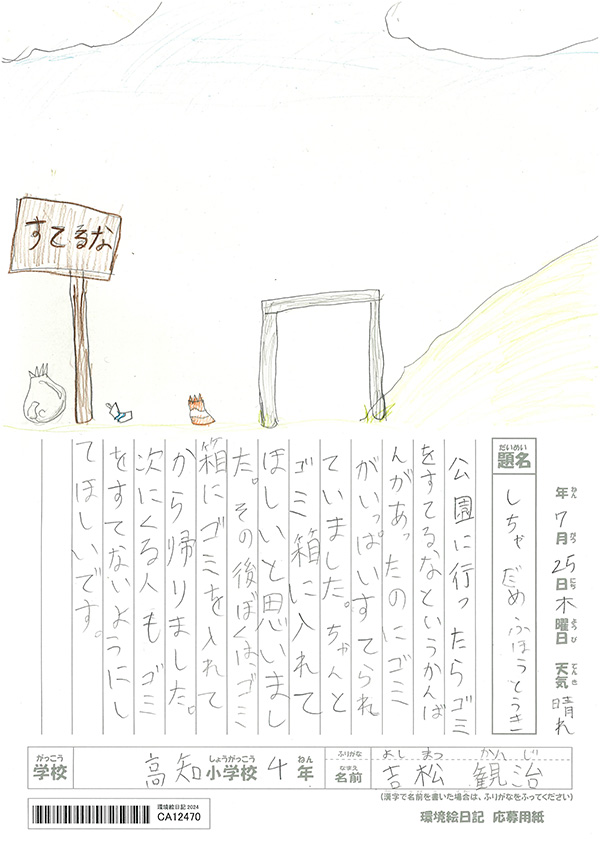 すてるな
年 7月25日木曜日 天気 晴れ
ねん がつ にち ようび てんき
だいめい
題名
しちゃだめふほうとうき
公園に行ったらゴミ
をすてるなというかんば
んがあったのにゴミ
がいっぱいすてられ
ていました。ちゃんと
ゴミ箱に入れて
ほしいと思いまし
た。その後ぼくはゴミ
箱にゴミを入れて
から帰りました。
次にくる人もゴミ
をすてないようにし
てほしいです。
がっこう
学校
高知
しょうがっこう
小学校
4
ねん
年
ふりがな
よしまつ かんじ
なまえ
名前
吉松 観治
(漢字で名前を書いた場合は、ふりがなをふってください)
環境絵日記 2024
CA12470
環境絵日記 応募用紙